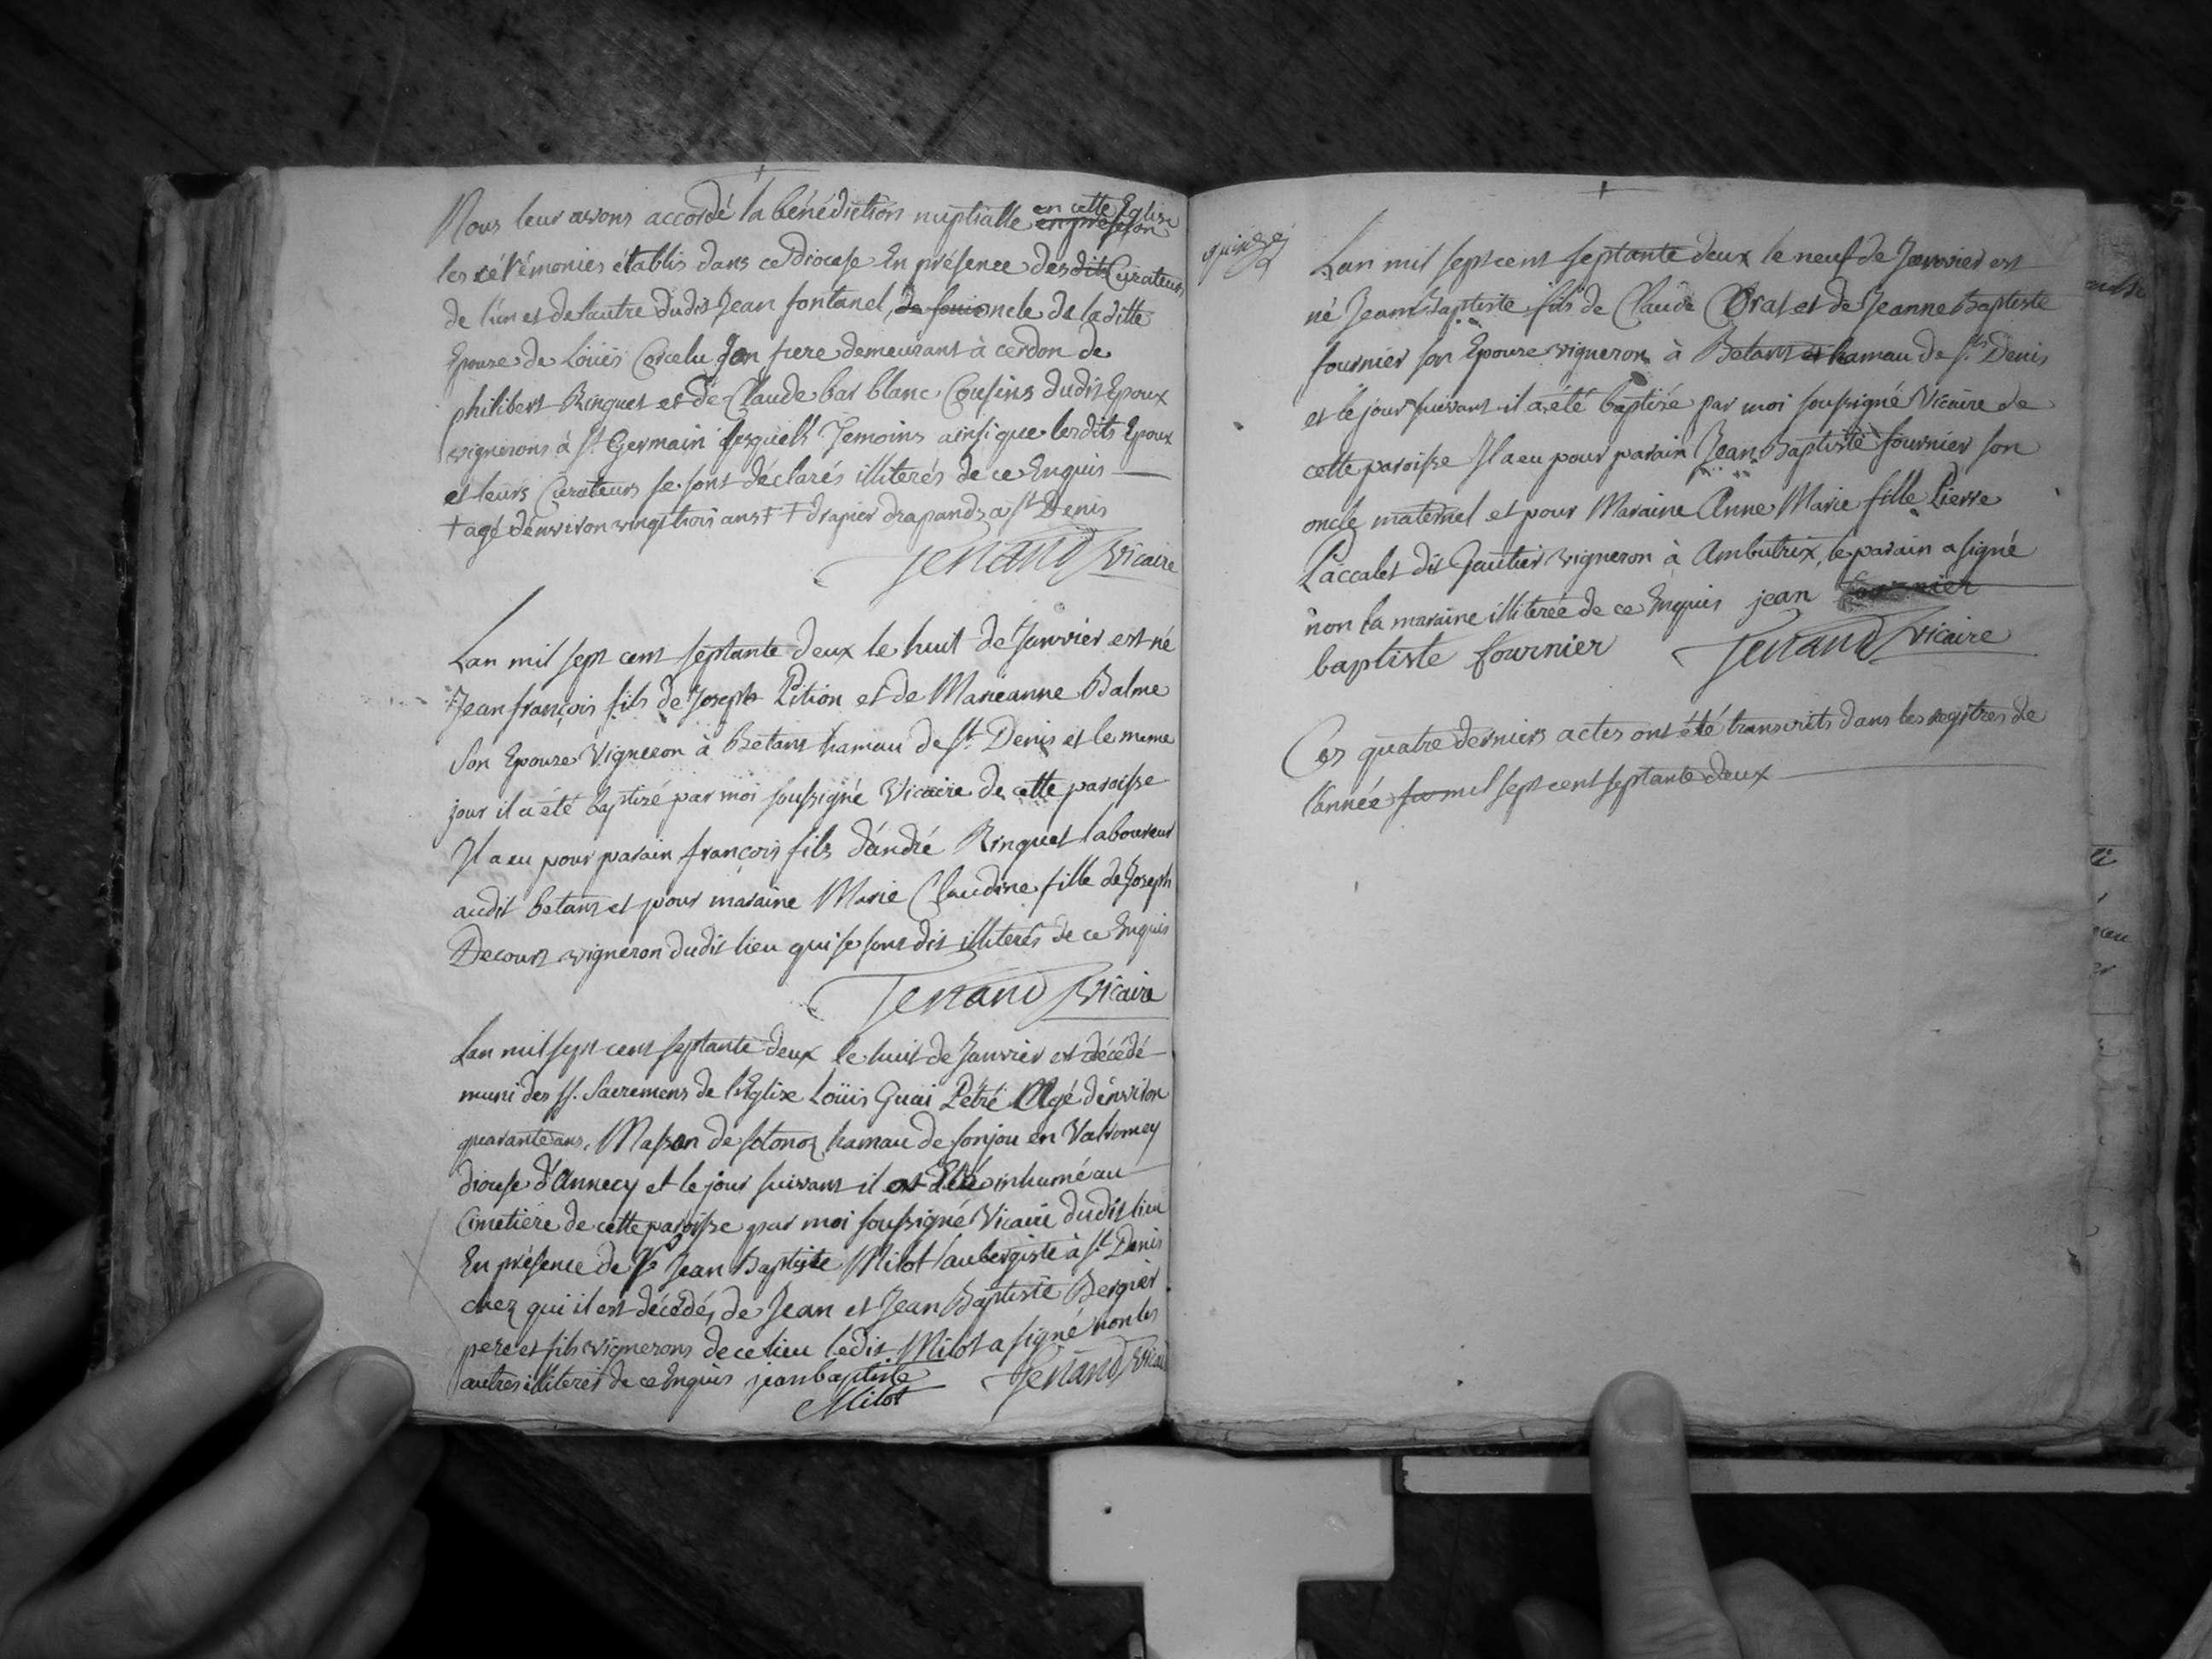 Nous leur avons accordé la bénédiction nuptialle en cette Eglise
les cérémonies établis dans ce Diocese En présence desdits Curateurs
de l'un et de l'autre dudit Jean fontanel, oncle de laditte
Epouse de Loüis Corcelu son frere demeurant à cerdon de
philibert Ringuet et de Claude bar blanc Cousins dudit Epoux
vignerons à St Germain lesquels Temoins ainsi que lesdits Epoux
et leurs Curateurs se sont déclarés illiterés de ce Enquis
† agé d'environ vingt trois ans † † drapier drapands à St Denis
Tenand Vicaire
Lan mil sept cent septante deux le huit de Janvier est né
Jean françois fils de Joseph Pition et de Marieanne Balme
Son Epouse Vigneron à Betans hamau de St Denis et le meme
jour il a été baptizé par moi soussigné Vicaire de cette paroisse
Il a eu pour parain françois fils d'andré Ringuet laboureur
audit betans et pour maraine Marie Claudine fille de Joseph
Decours vigneron dudit lieu qui se sont dit illiterés de ce Enquis
Tenand Vicaire
Lan mil sept cent septante deux le huit de Janvier est décédé
muni des SS. Sacremens de l'Eglize Loüis Guai Pétré Agé d'environ
quarante ans, Masson de sotonoz hamau de sonjou en Valromey
diocese d'Annecy et le jour suivant il a été inhumé au
Cimetière de cette paroisse par moi soussigné Vicaire dudit lieu
En présence de Jean Baptiste Milot aubergiste à St Denis
chez qui il est décédé, de Jean et Jean Baptiste Bergier
pere et fils vignerons de ce lieu ledit Milot a signé non les
autres illiterés de ce Enquis jean baptiste
Milot Tenand Vicaire
quinze
Lan mil sept cent septante deux le neuf de Janvier est
né Jean Baptiste fils de Claude Orat et de Jeanne Baptiste
fournier son Epouse vigneron à Betans hamau de St Denis
et le jour suivant il a été baptizé par moi soussigné Vicaire de
cette paroisse Il a eu pour parain Jean Baptiste fournier son
oncle maternel et pour Maraine Anne Marie fille Pierre
Laccalet dit Gautier vigneron à Ambutrix, le parain a signé
non la maraine illiterée de ce Enquis jean fournier
baptiste fournier Tenand Vicaire
Ces quatre derniers actes ont été transcrits dans les registres de
l'année mil sept cent septante deux